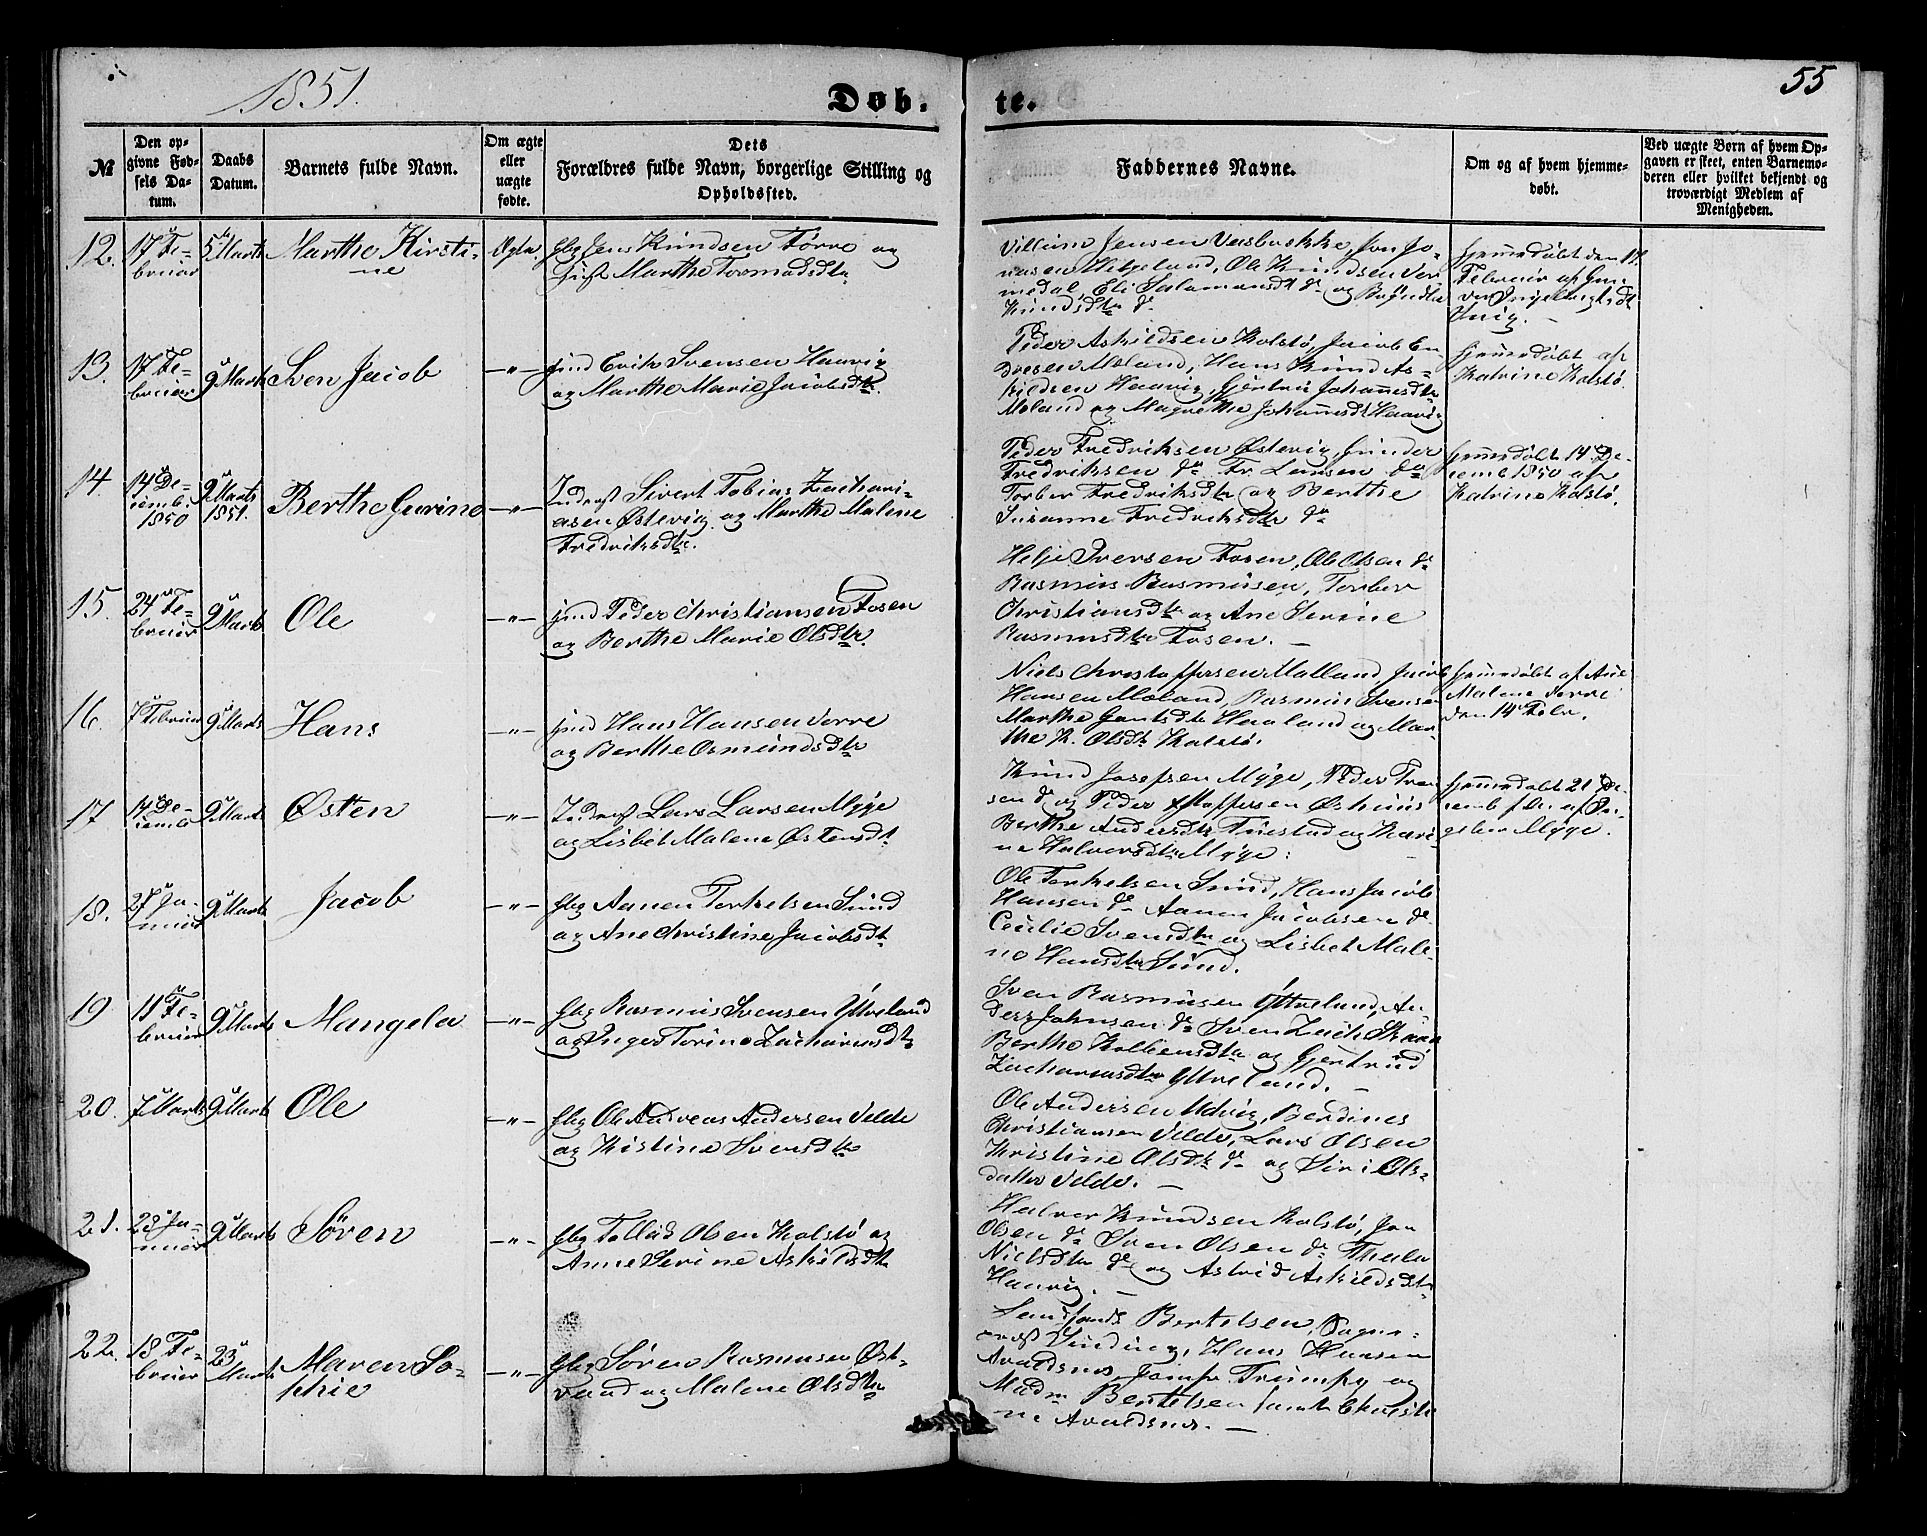 1851.
Døb-
te.
55
№
Den op-
givne Fød-
sels Da-
tum.
Daabs
Datum.
Barnets fulde Navn.
Om ægte
eller
uægte
fødte.
Dets
Forældres fulde Navn, borgerlige Stilling og
Opholdssted.
Faddernes Navne.
Om og af hvem hjemme-
døbt.
Ved uægte Børn af hvem Op-
gaven er skeet, enten Barnemo-
deren eller hvilket bekjendt og
troværdigt Medlem af
Menigheden.
12. 17 Fe-
bruar
5 Marts
Marthe Kirsti-
ne
Ægte
Gbg Jens Knudsen Førre og
Hust Marthe Tormodsdtr
Villum Jensen Vasbrekke, Jon Jo-
nasen Helgeland, Ole Knudsen Ser-
medal, Eli Salamonsdt do og
Knudsdtr do
Hjemmedøbt den 17
Februar af Gun-
vor Ingebrigtsdt
13. 17 Fe-
bruar
9 Marts
Sven Jacob
—"—
Ind Erik Svensen Haavig
og Marthe Marie Jacobsdtr.
Peder Askildsen Kolstø, Jacob En-
dresen Møland, Hans Knud As-
kildsen Haavig, Gjertru Johannesdtr
Møland og Magrethe Johannesdt Haavig
Hjemmedøbt af
Katrine Kolstø.
14. 14 De-
cemb.
1850
9 Marts
1851.
Berthe Gurine
—"—
Inderst Sivert Tobias Zachari-
asen Østevig og Marthe Malene
Fredriksdtr.
Peder Fredriksen Østevig, Gunder
Fredriksen do Fr Larsen do
Torber Fredriksdtr og Berthe
Susanne Fredriksdtr do
Hjemmedøbt 14 De-
cemb 1850 af
Katrine Kolstø.
15. 24 Fe-
bruar
9 Marts
Ole
—"—
Ind Peder Christiansen Fosen
og Berthe Marie Olsdtr.
Helje Iversen Fosen, Ole Olsen do
Rasmus Rasmusen, Torber
Christiansdtr og Ane Serine
Rasmusdtr Fosen. —
16. 7 Februar
9 Marts
Hans
—"—
Ind Hans Hansen Førre
og Berthe Osmundsdtr
Niels Christoffersen Malland, Jacob
Hansen Møland, Rasmus Svensen
Marthe Hovland og Mar-
the K. Olsdtr Kolstø.
Hjemmedøbt af Ane
Malene Førre
den 14 Febr.
17 14 De-
cemb
9 Marts
Østen
—"—
Inderst Lars Larsen Myge
og Lisbet Malene Østensdt
Knud Josefsen Myge, Peder
sen do og Peder
Berthe Andersdtr og Kari-
ne Halvorsdtr Myge.
Hjemmedøbt 21 De-
cemb f. A. af In-
geber Myge.
18. 27 Ja-
nuar
9 Marts
Jacob
—"—
Gbg Aanen Torkelsen Sund
og Ane Christine Jacobsdt
Ole Torkelsen Sund, Hans Jacob
Hansen do Aanen Jacobsen do
Cecilie Svensdtr og Lisbet Male-
ne Hansdtr Sund.
19 11 Fe-
bruar
9 Marts
Mangela
—"—
Gbg Rasmus Svensen Ytreland
og Inger Torine Zachariasdtr
Sven Rasmusen Ytreland, An-
ders Johnsen do Sven Zach.
Berthe dtr og Gjertrud
Zachariasdtr Ytreland. —
20. 7 Marts
9 Marts
Ole
—"—
Gbg Ole Andreas Andersen Velde
og Kistine Svensdtr
Ole Andersen Udvig, Berdines
Christiansen Velde, Lars Olsen
Kristine Olsdtr do og Siri Ols-
datter Velde. —
21. 23 Ja-
nuar
9 Marts
Søren
—"—
Gbg Tollak Olsen Kolstø og
Anne Serine Askildsdtr
Halvor Knudsen Kolstø, Jon
Olsen do Sven Olsen do Thala
Nielsdtr do og Astrid Askildsdtr
Haavig. —
22. 18 Fe-
bruar
23
Marts
Maren So-
phie
—"—
Gbg Søren Rasmusen Øst-
vand og Malene Olsdtr
Bertelsen, Sogne-
præst Sinding, Hans Hansen
Avaldsnes, Jomfr Trumpy og
Madm Bertelsen samt Christi-
ne Avaldsnes. —